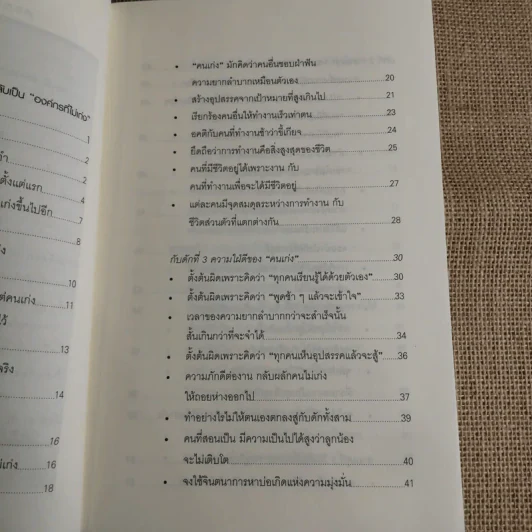 ลับเป็น "องค์กรที่ไม่เก่ง"
1
2
ตั้งแต่แรก 4
เก่งขึ้นไปอีก 7
8
10
ต่คนเก่ง 11
13
14
16
16
18
• "คนเก่ง" มักคิดว่าคนอื่นชอบฝ่าฟัน
ความยากลำบากเหมือนตัวเอง 20
• สร้างอุปสรรคจากเป้าหมายที่สูงเกินไป 21
• เรียกร้องคนอื่นให้ทำงานเร็วเท่าตน 23
• อคติกับคนที่ทำงานช้าว่าขี้เกียจ 24
• ยึดถือว่าการทำงานคือสิ่งสูงสุดของชีวิต 25
• คนที่มีชีวิตอยู่ได้เพราะงาน กับ
คนที่ทำงานเพื่อจะได้มีชีวิตอยู่ 27
• แต่ละคนมีจุดสมดุลระหว่างการทำงาน กับ
ชีวิตส่วนตัวที่แตกต่างกัน 28
กับดักที่ 3 ความใฝ่ดีของ "คนเก่ง" 30
• ตั้งต้นผิดเพราะคิดว่า "ทุกคนเรียนรู้ได้ด้วยตัวเอง" 30
• ตั้งต้นผิดเพราะคิดว่า "พูดซ้ำ ๆ แล้วจะเข้าใจ" 33
• เวลาของความยากลำบากกว่าจะสำเร็จนั้น
สั้นเกินกว่าที่จะจำได้ 34
• ตั้งต้นผิดเพราะคิดว่า "ทุกคนเห็นอุปสรรคแล้วจะสู้" 36
• ความภักดีต่องาน กลับผลักคนไม่เก่ง
ให้ถอยห่างออกไป 37
• ทำอย่างไรไม่ให้ตนเองตกลงสู่กับดักทั้งสาม 39
• คนที่สอนเป็น มีความเป็นไปได้สูงว่าลูกน้อง
จะไม่เติบโต 40
• จงใช้จินตนาการหาบ่อเกิดแห่งความมุ่งมั่น 41